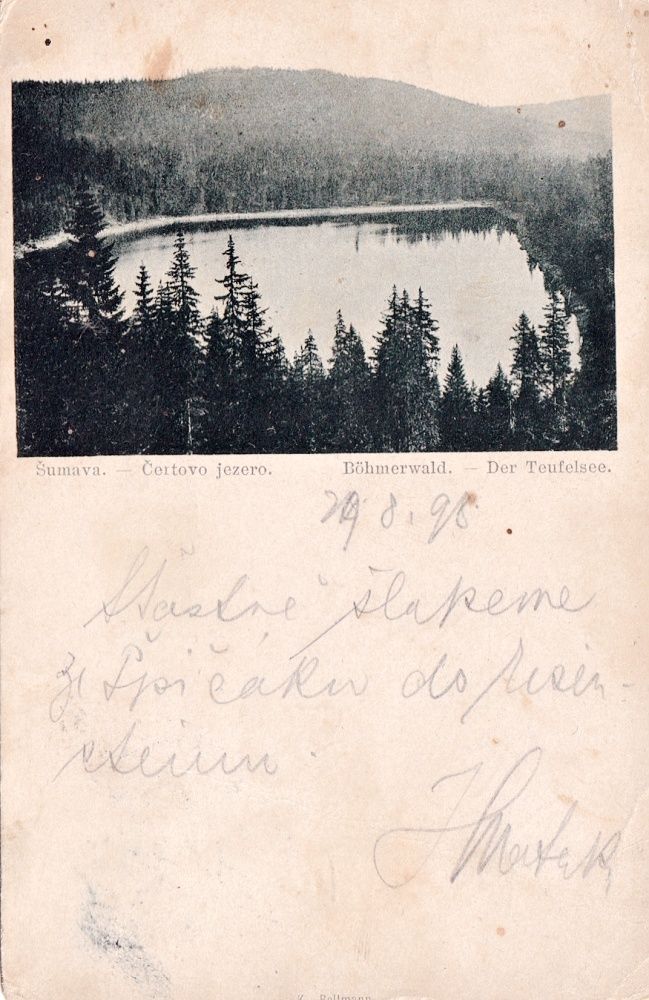 Šumava. — Čertovo jezero. Böhmerwald. — Der Teufelsee.
8. 98
Šťastně šlapeme
ze Špičáku do Eisen-
steinu.